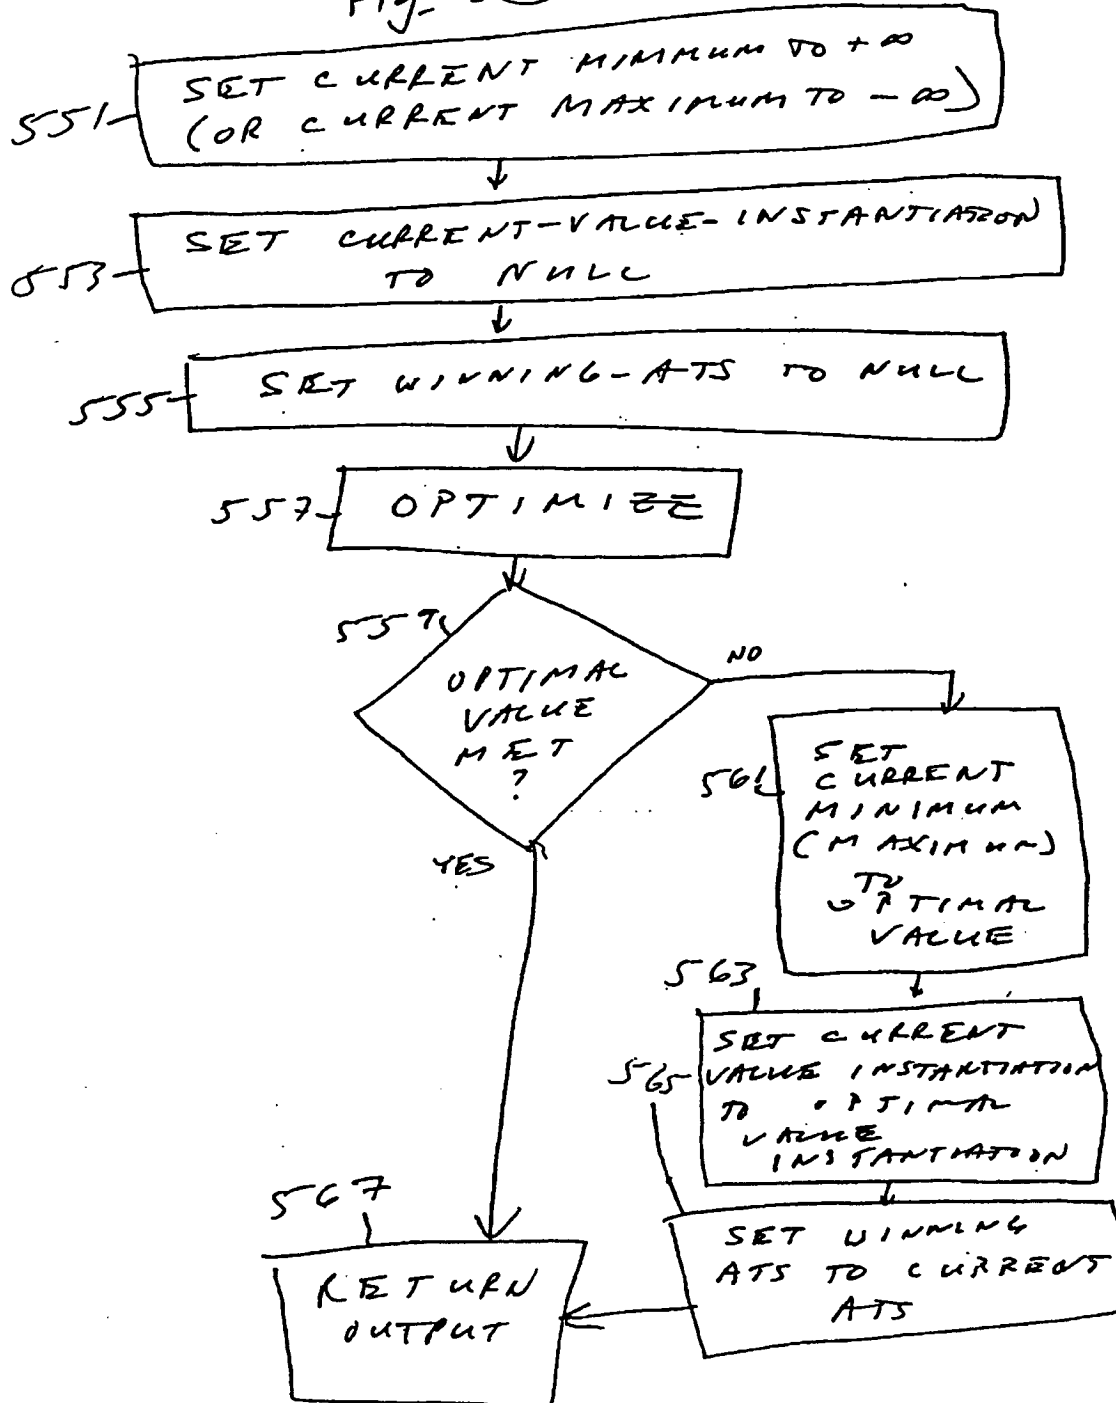 Fig.
551
SET CURRENT MINIMUM TO + ∞
(OR CURRENT MAXIMUM TO - ∞)
553
SET CURRENT-VALUE-INSTANTIATION
TO NULL
555
SET WINNING-ATS TO NULL
557
OPTIMIZE
559
OPTIMAL
VALUE
MET
?
NO
YES
561
SET
CURRENT
MINIMUM
(MAXIMUM)
TO
OPTIMAL
VALUE
563
SET CURRENT
VALUE INSTANTIATION
TO OPTIMAL
VALUE
INSTANTIATION
565
SET WINNING
ATS TO CURRENT
ATS
567
RETURN
OUTPUT